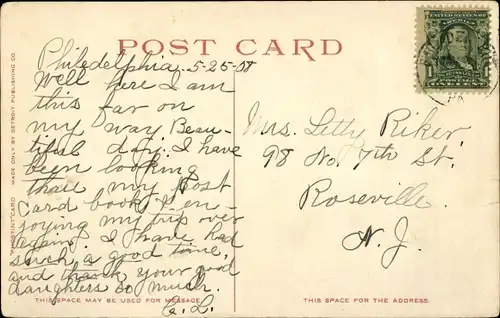 POST CARD
Philedelphia 5-25-08
Well here I am
this far on
my way, Beau-
tiful day. I have
been looking
thru my post
card book & en-
joying my trip over
again. I have had
such a good time,
and thank your good
daughters so much.
C. L.
Mrs. Letty Riker,
98 No. 7th St.
Roseville.
N. J.
UNITED STATES OF
AMERICA
ONE CENT
PHOSTINT CARD
MADE ONLY BY DETROIT PUBLISHING CO.
THIS SPACE MAY BE USED FOR MESSAGE.
THIS SPACE FOR THE ADDRESS.